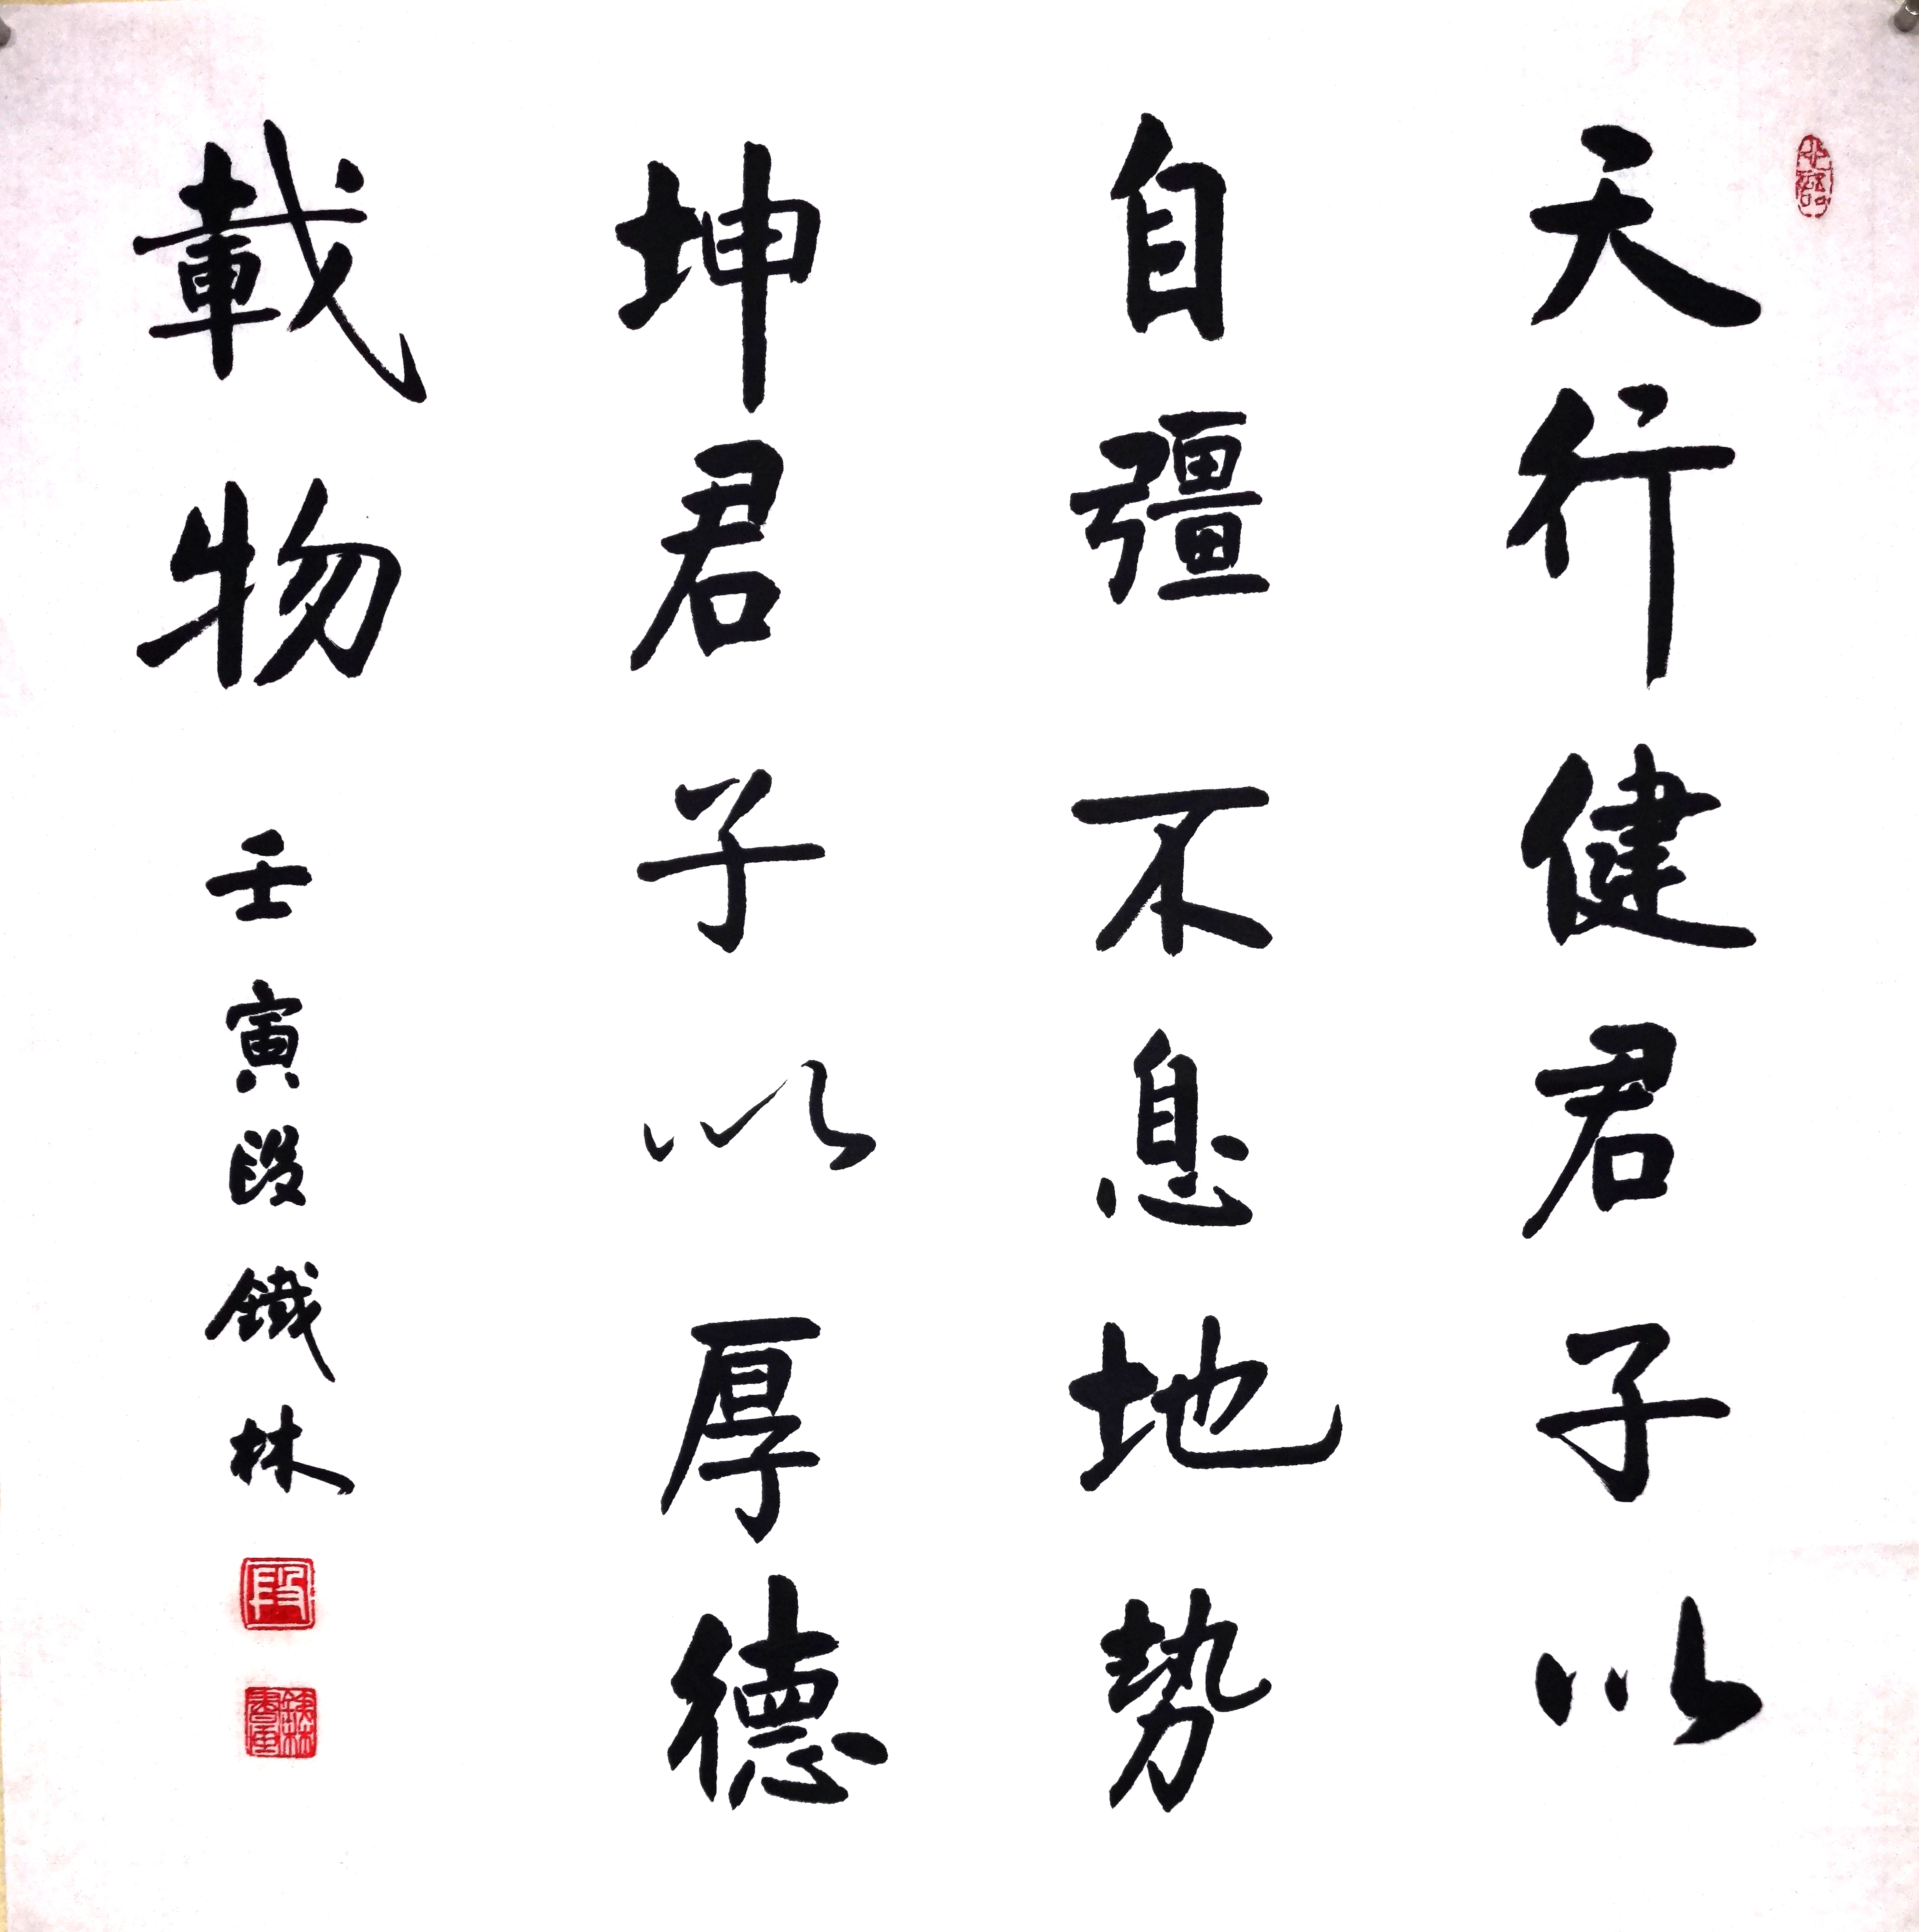 天行健君子以
自彊不息地势
坤君子以厚德
載物
壬寅段鐵林
段